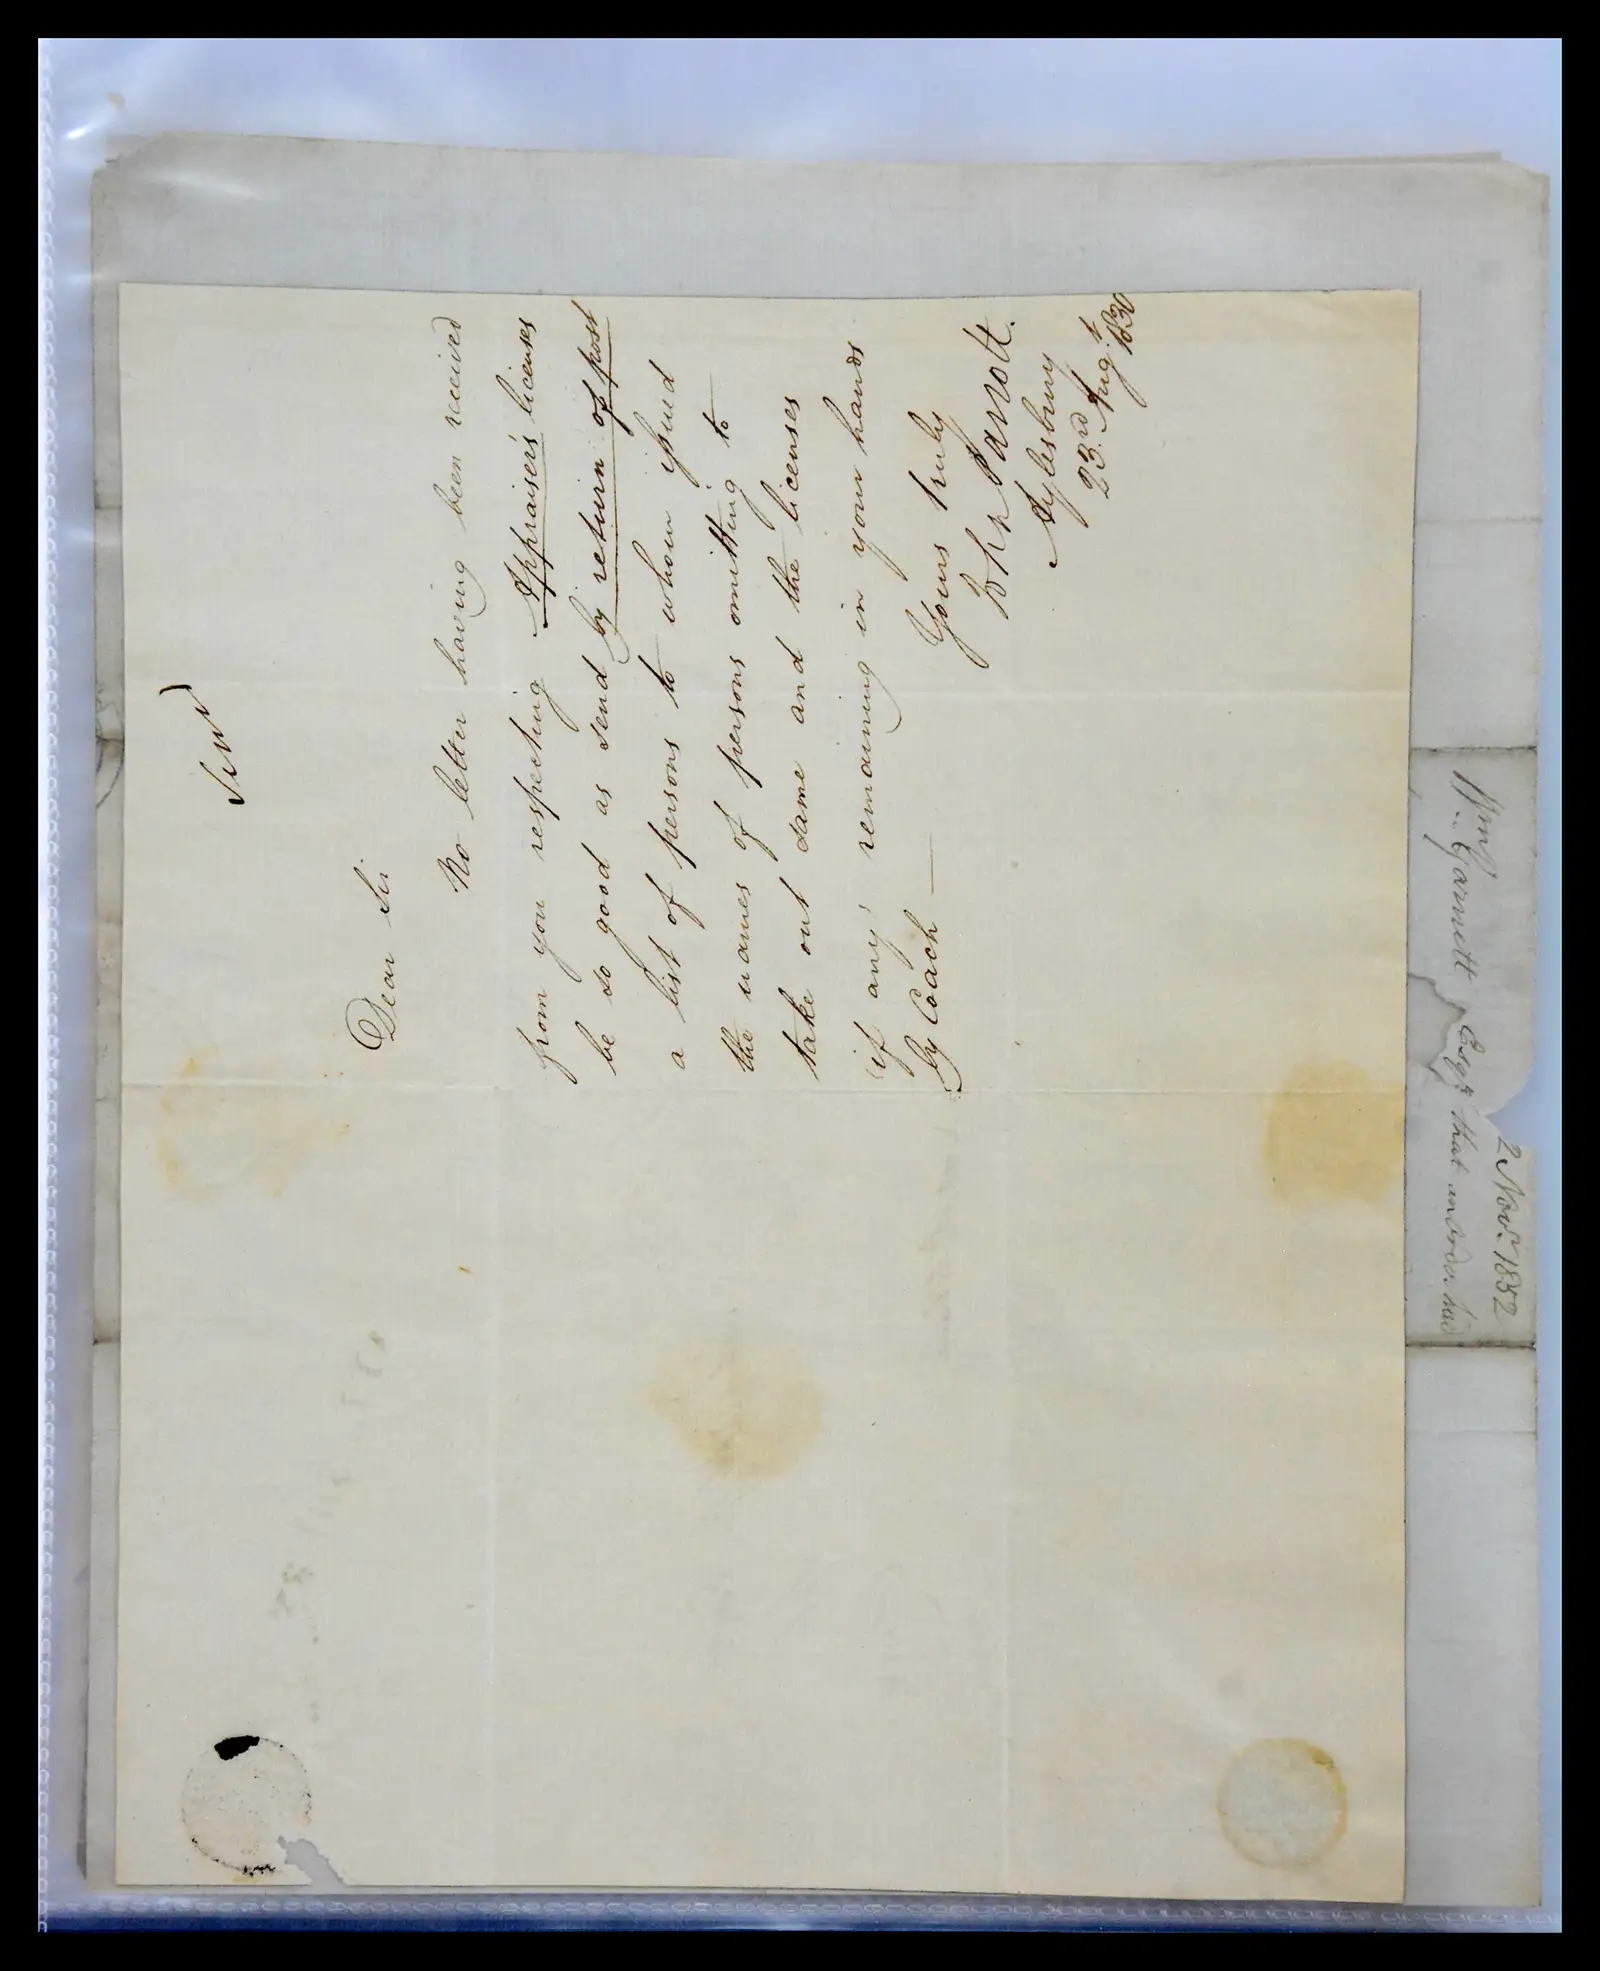 Send
Dear Sir
No letter having been received
from you respecting Appraiser's licenses
be so good as send by return of post
a list of persons to whom issued
the names of persons omitting to
take out same and the licenses
(if any) remaining in your hands
by Coach —
Yours truly
Parrott.
Aylesbury
23rd Augt 1830
2 Novr. 1852
Garnett Esqr. that